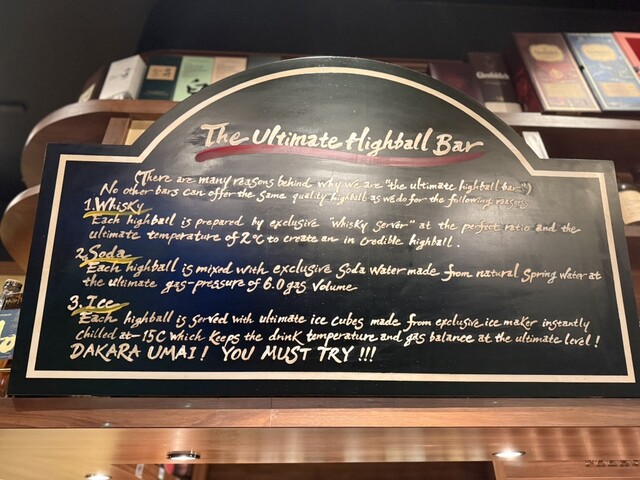 白
Glenfiddich
The Ultimate Highball Bar
(There are many reasons behind why we are "the ultimate highball bar")
No other bars can offer the same quality highball as we do for the following reasons
1. Whisky
Each highball is prepared by exclusive "whisky server" at the perfect ratio and the
ultimate temperature of 2℃ to create an in credible highball.
2. Soda
Each highball is mixed with exclusive Soda Water made from natural Spring Water at
the ultimate gas-pressure of 6.0 gas volume
3. Ice
Each highball is served with ultimate ice cubes made from exclusive ice maker instantly
chilled at -15C which keeps the drink temperature and gas balance at the ultimate level!
DAKARA UMAI! YOU MUST TRY!!!